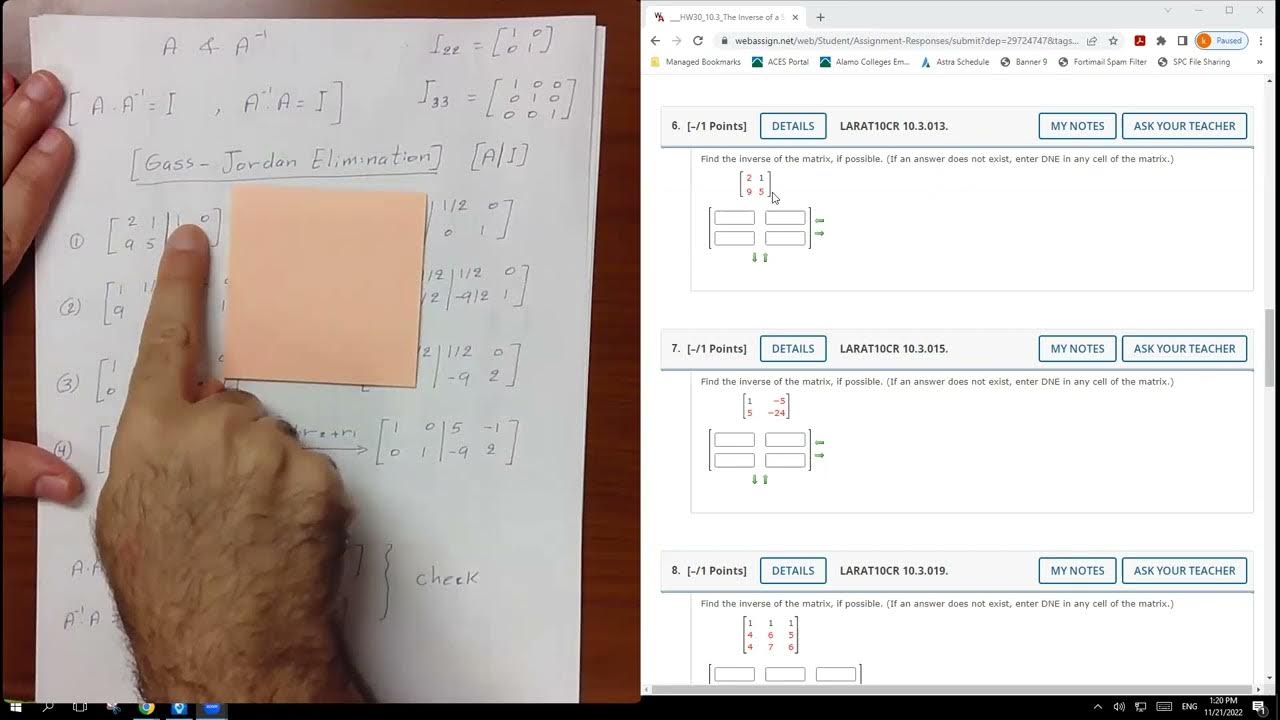 A & A⁻¹
I₂₂ = [1 0
0 1]
[A·A⁻¹ = I , A⁻¹A = I]
I₃₃ = [1 0 0
0 1 0
0 0 1]
[Gass-Jordan Elimination] [A|I]
① [2 1 | 1 0]
9 5
1/2 0]
0 1
(2) [1
9
1/2 | 1/2 0]
-9/2 1
(3) [1
0
1/2 0]
-9 2
(4) [
r₂+r₁ → [1 0 | 5 -1]
0 1 | -9 2
} check
A⁻¹A =
___HW30_10.3_The Inverse of a S
webassign.net/web/Student/Assignment-Responses/submit?dep=29724747&tags...
Paused
Managed Bookmarks ACES Portal Alamo Colleges Em... Astra Schedule Banner 9 Fortimail Spam Filter SPC File Sharing
6. [–/1 Points] DETAILS LARAT10CR 10.3.013. MY NOTES ASK YOUR TEACHER
Find the inverse of the matrix, if possible. (If an answer does not exist, enter DNE in any cell of the matrix.)
2 1
9 5
7. [–/1 Points] DETAILS LARAT10CR 10.3.015. MY NOTES ASK YOUR TEACHER
Find the inverse of the matrix, if possible. (If an answer does not exist, enter DNE in any cell of the matrix.)
1 −5
5 −24
8. [–/1 Points] DETAILS LARAT10CR 10.3.019. MY NOTES ASK YOUR TEACHER
Find the inverse of the matrix, if possible. (If an answer does not exist, enter DNE in any cell of the matrix.)
1 1 1
4 6 5
4 7 6
ENG
1:20 PM
11/21/2022